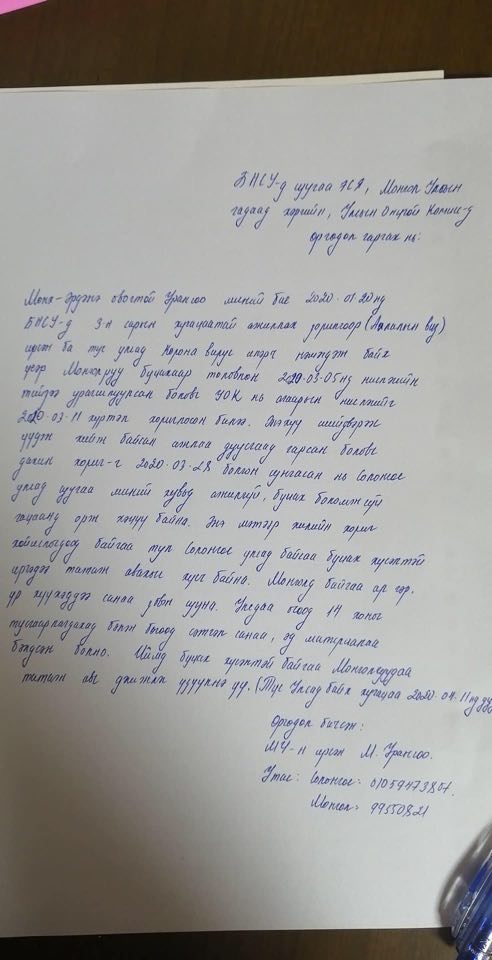 БНСУ-д суугаа ЭСЯ, Монгол Улсын
гадаад хэргийн, Улсын Онцгой Комисс-д
Өргөдөл гаргах нь:
Мөнх-Эрдэнэ овогтой Урангоо миний бие 2020.01.20нд
БНСУ-д 3-н сарын хугацаатай ажиллах зорилгоор (Аялалын виз)
ирсэн ба тус улсад Корона вирус илэрч байх
үеэр Монголруу буцахаар төлөвлөн 2020.03.05нд нислэгийн
тийзээ урагшлуулсан боловч УОК нь агаарын нислэгийг
2020.03.11 хүртэл хориглосон билээ. Энэхүү шийдвэрэн
үүдэн хийж байсан ажлаа дуусгаад гарсан боловч
дахин хориг-г 2020.03.28 болгон сунгасан нь Солонгос
улсад суугаа миний хувьд ажилгүй, буцах боломжгүй
гацаанд орж хэцүү байна. Энэ мэтээр хилийн хориг
байгаа тул Солонгос улсад байгаа буцах хүсэлтэй
иргэдээ татаж авахыг хүсч байна. Монголд байгаа ар гэр,
үр хүүхэддээ санаа зовж сууна. Улсдаа очоод 14 хоног
тусгаарлагдахад бэлэн бөгөөд сэтгэл санаа, эд материалаа
бэлдсэн болно. Иймд буцах хүсэлтэй байгаа Монголчуудаа
татаж авч дэмжлэг үзүүлнэ үү. (Тус Улсад байх хугацаа 2020.04.11нд
Өргөдөл бичсэн:
МУ-н иргэн М. Урангоо.
Утас: Солонгос: 01059473807.
Монгол: 99550821